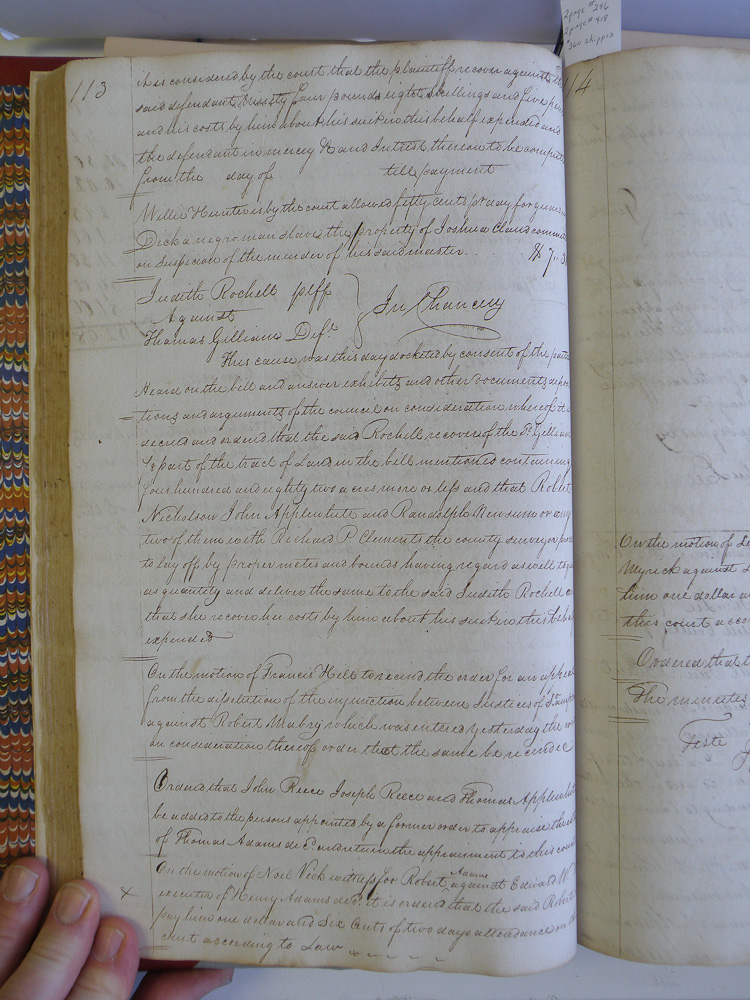 2 page # 246
2 page # 418
# 360 skipped
113
it is considered by the court that the plaintiff recover against the
said defendant Ninety four pounds eight shillings and five pen
and his costs by him about his suit in this behalf expended and
the defendant in mercy &c and Interest thereon to be compute
from the day of till payment
Willie Hunter is by the court allowed fifty cents pr day for guard
Dick a negro man slave the property of Joshua Claud commit
on Suspicion of the murder of his said master. $7..5
Judith Rochell plff
Against
Thomas Gilliam Deft.
In Chancery
This cause was this day docketed by consent of the parties
Heard on the bill and answer exhibits and other documents depos
tions and arguments of the council on consideration whereof it is
decred and ordered that the said Rochell recover of the sd. Gilliam
1/3 part of the tract of Land in the bill mentioned containing
four hundred and eighty two acres more or less and that Robert
Nicholson John Applewhite and Randolph Newsum or any
two of them with Richard P Clements the county surveyor
to lay off by proper metes and bounds having regard as well to
as quantity and deliver the same to the said Judith Rochell
that she recover her costs by him about his suit in this beha
expended
On the motion of Francis Hill to rescind the order for an appeal
from the dissolution of the injunction between Justices of
against Robert Mabry which was entered yesterday the
on consideration thereof order that the same be recinded
Ordered that John Reece Joseph Reece and Thomas Applewhite
be added to the persons appointed by a former order to appraise the
of Thomas Adams decd. and return the appraisment to this court
On the motion of Noel Vick witness for Robert Adams against Edward W
x executor of Henry Adams decd. it is ordered that the said Robert
pay him one dollar and Six Cents of two days attendance on
court according to Law
14
On the motion of
Myrick against
him one dollar
this court acco
Ordered that t
The minutes
Teste